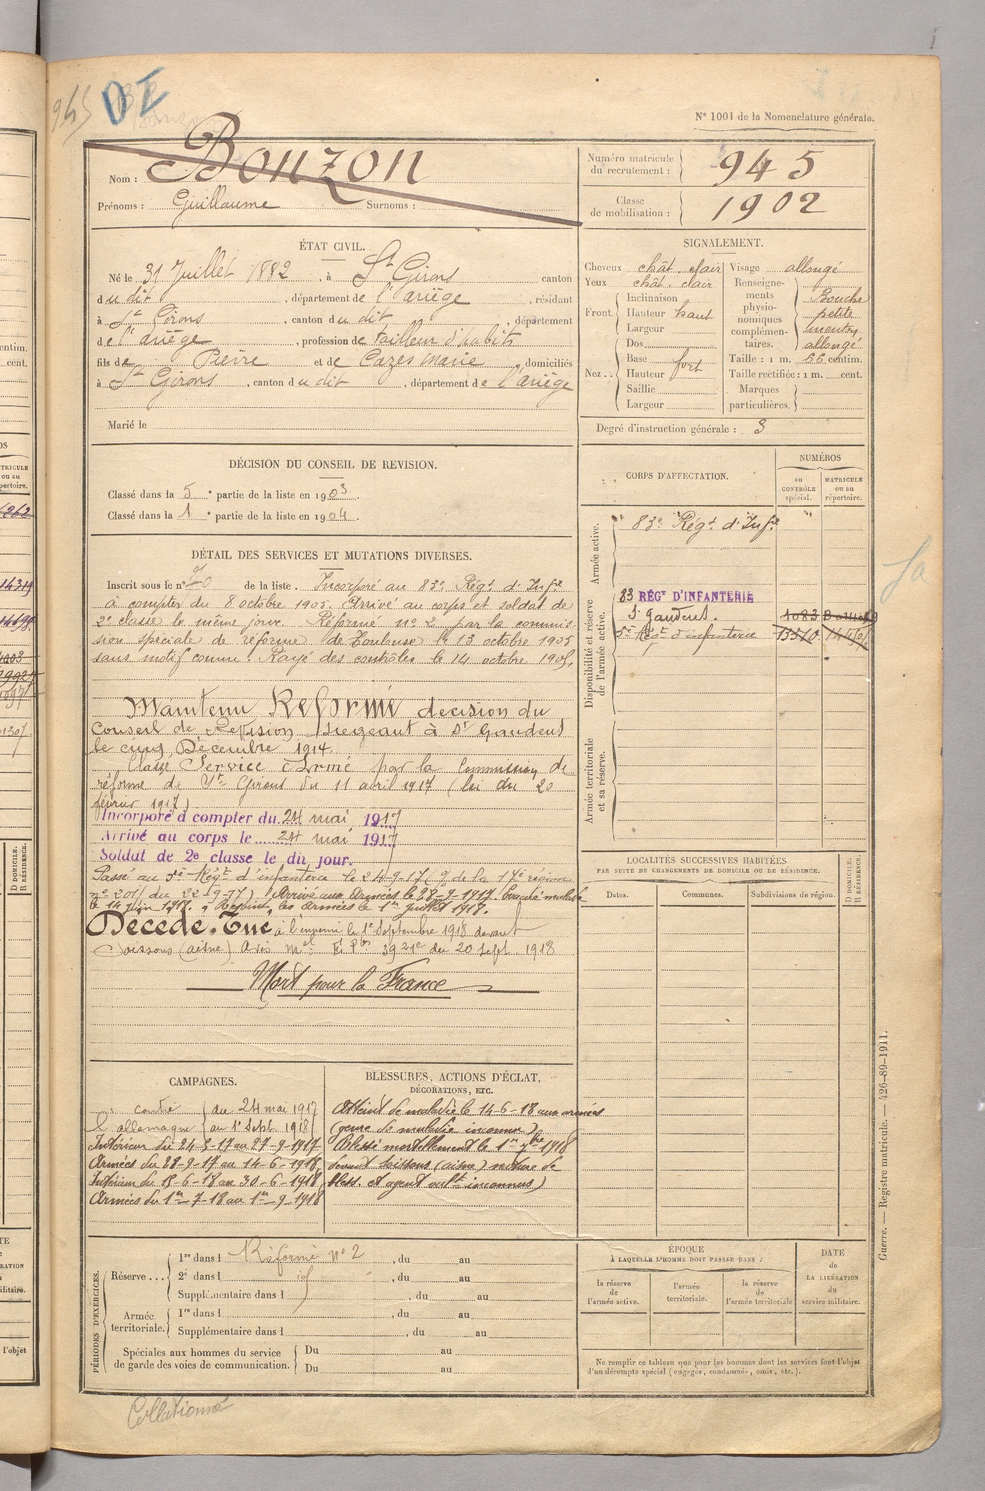 945
N° 1001 de la Nomenclature générale.
Nom : Bonzon
Prénoms : Guillaume Surnoms :
Numéro matricule du recrutement : 945
Classe de mobilisation : 1902
ÉTAT CIVIL.
Né le 31 Juillet 1882, à St Girons canton
du dit, département de l'Ariège, résidant
à St Girons, canton du dit, département
de l'Ariège, profession de tailleur d'habits
fils de Pierre et de Cazes Marie domiciliés
à St Girons, canton du dit, département de l'Ariège
Marié le
SIGNALEMENT.
Cheveux chât. clair Visage allongé
Yeux chât. clair
Front : Inclinaison
Hauteur haut
Largeur
Nez : Dos
Base
Hauteur fort
Saillie
Largeur
Renseignements physionomiques complémentaires. Bouche petite menton allongé
Taille : 1 m. 66 centim.
Taille rectifiée : 1 m. cent.
Marques particulières.
Degré d'instruction générale : 3
DÉCISION DU CONSEIL DE REVISION.
Classé dans la 5e partie de la liste en 1903.
Classé dans la 1e partie de la liste en 1904.
DÉTAIL DES SERVICES ET MUTATIONS DIVERSES.
Inscrit sous le n° 70 de la liste. Incorporé au 83e Régt d'Infie
à compter du 8 octobre 1905. Arrivé au corps et soldat de
2e classe le même jour. Réformé n° 2 par la commis-
sion spéciale de réforme de Toulouse le 13 octobre 1905
sans motif connu. Rayé des contrôles le 14 octobre 1905.
Maintenu Réformé décision du
Conseil de Revision siégeant à St Gaudens
le cinq Décembre 1914.
Classé Service Armé par la Commission de
réforme de St Girons du 11 avril 1917 (loi du 20
février 1917)
Incorporé à compter du 24 mai 1917
Arrivé au corps le 24 mai 1917
Soldat de 2e classe le dit jour.
Passé au Régt d'infanterie le 24-9-17 (9 de la 17e région
n° 2011 du 22-9-17) Arrivé aux Armées le 28-9-1917. Evacué malade
le 14 juin 1918. Rejoint les armées le 1er juillet 1918.
Décédé. Tué à l'ennemi le 1er Septembre 1918 devant
Soissons (aisne) Avis mel 3921e du 20 Sept 1918
Mort pour la France
CORPS D'AFFECTATION.
NUMÉROS
au CONTRÔLE spécial.
MATRICULE ou au répertoire.
Armée active.
83e Régt d'Infie
Disponibilité et réserve de l'armée active.
83 RÉGT D'INFANTERIE
St Gaudens.
Régt d'infanterie
Armée territoriale et sa réserve.
LOCALITÉS SUCCESSIVES HABITÉES
PAR SUITE DE CHANGEMENTS DE DOMICILE OU DE RÉSIDENCE.
Dates. Communes. Subdivisions de région. D DOMICILE. R RÉSIDENCE.
CAMPAGNES.
contre l'allemagne du 24 mai 1917
au 1er Sept. 1918
Intérieur du 24-5-17 au 27-9-1917
Armées du 28-9-17 au 14-6-1918
Intérieur du 15-6-18 au 30-6-1918
Armées du 1er-7-18 au 1er-9-1918
BLESSURES, ACTIONS D'ÉCLAT,
DÉCORATIONS, ETC.
Atteint de maladie le 14-6-18 aux armées
(genre de maladie inconnu).
Blessé mortellement le 1er 7bre 1918
devant Soissons (aisne) nature de
bless. et agent vult inconnus)
PÉRIODES D'EXERCICES.
Réserve...
1re dans l Réformé n° 2, du au
2e dans l, du au
Supplémentaire dans l, du au
Armée territoriale.
1re dans l, du au
Supplémentaire dans l, du au
Spéciales aux hommes du service de garde des voies de communication.
Du au
Du au
ÉPOQUE
À LAQUELLE L'HOMME DOIT PASSER DANS :
la réserve de l'armée active.
l'armée territoriale.
la réserve de l'armée territoriale
DATE de LA LIBÉRATION du service militaire.
Ne remplir ce tableau que pour les hommes dont les services font l'objet
d'un décompte spécial (engagés, condamnés, omis, etc.).
Guerre. — Registre matricule. — 426-89-1911.
Collationné